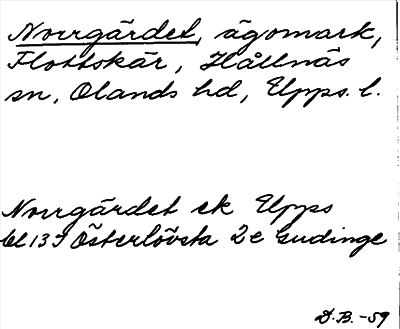 Norrgärdet, ägomark,
Flottskär, Hållnäs
sn, Olands hd, Upps. l.
Norrgärdet ek Upps
bl 13 J Österlövsta 2e Gudinge
D.B. -59